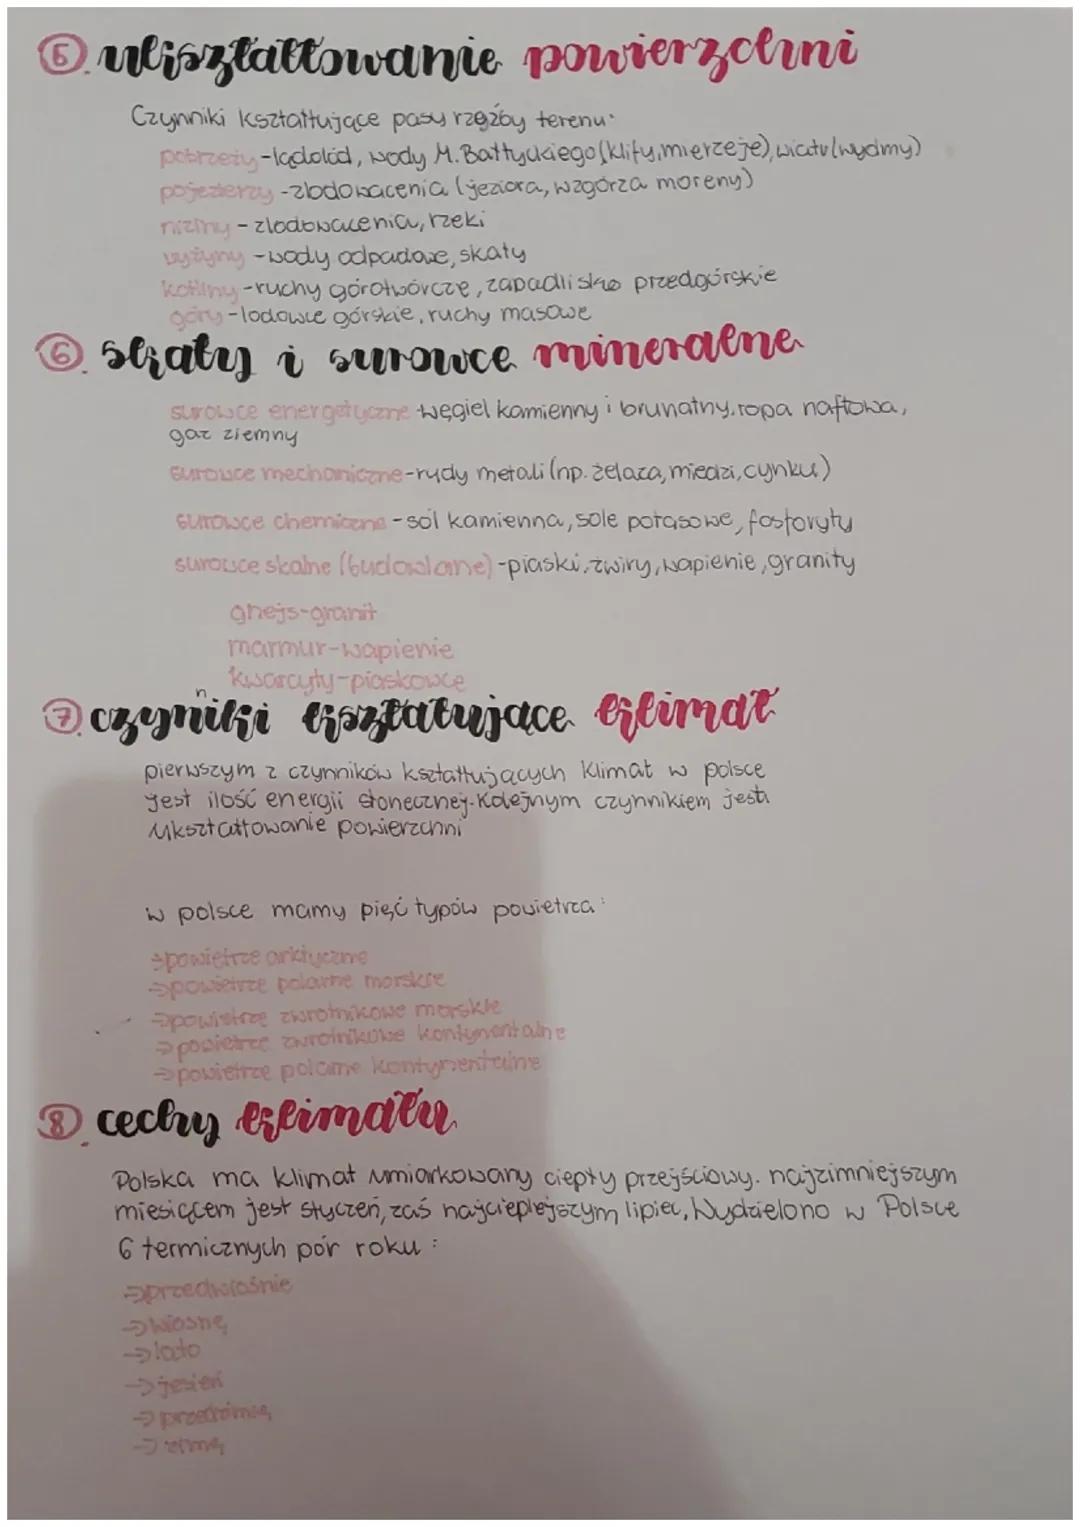 5. ukształtowanie powierzchni
Czynniki kształtujące pasy rzeźby terenu:
pobrzeży - lądolód, wody M. Bałtyckiego (klify, mierzeje), wiatr (wydmy)
pojezierzy - zlodowacenia (jeziora, wzgórza moreny)
niziny - zlodowacenia, rzeki
wyżyny - wody odpadowe, skały
kotliny - ruchy górotwórcze, zapadlisko przedgórskie
góry - lodowce górskie, ruchy masowe
6. skały i surowce mineralne
surowce energetyczne - węgiel kamienny i brunatny, ropa naftowa,
gaz ziemny
surowce mechaniczne - rudy metali (np. żelaza, miedzi, cynku)
surowce chemiczne - sól kamienna, sole potasowe, fosforyty
surowce skalne (budowlane) - piaski, żwiry, wapienie, granity
gnejs-granit
marmur-wapienie
kwarcyty-piaskowce
7. czynniki kształtujące klimat
pierwszym z czynników kształtujących klimat w polsce
jest ilość energii słonecznej. Kolejnym czynnikiem jest
Ukształtowanie powierzchni
w polsce mamy pięć typów powietrza:
→powietrze arktyczne
→powietrze polarne morskie
→powietrze zwrotnikowe morskie
→powietrze zwrotnikowe kontynentalne
→powietrze polarne kontynentalne
8. cechy klimatu
Polska ma klimat umiarkowany ciepły przejściowy. najzimniejszym
miesiącem jest styczeń, zaś najcieplejszym lipiec, Wydzielono w Polsce
6 termicznych pór roku:
→przedwiośnie
→wiosnę
→lato
→jesień
→przedzimie
→zimę